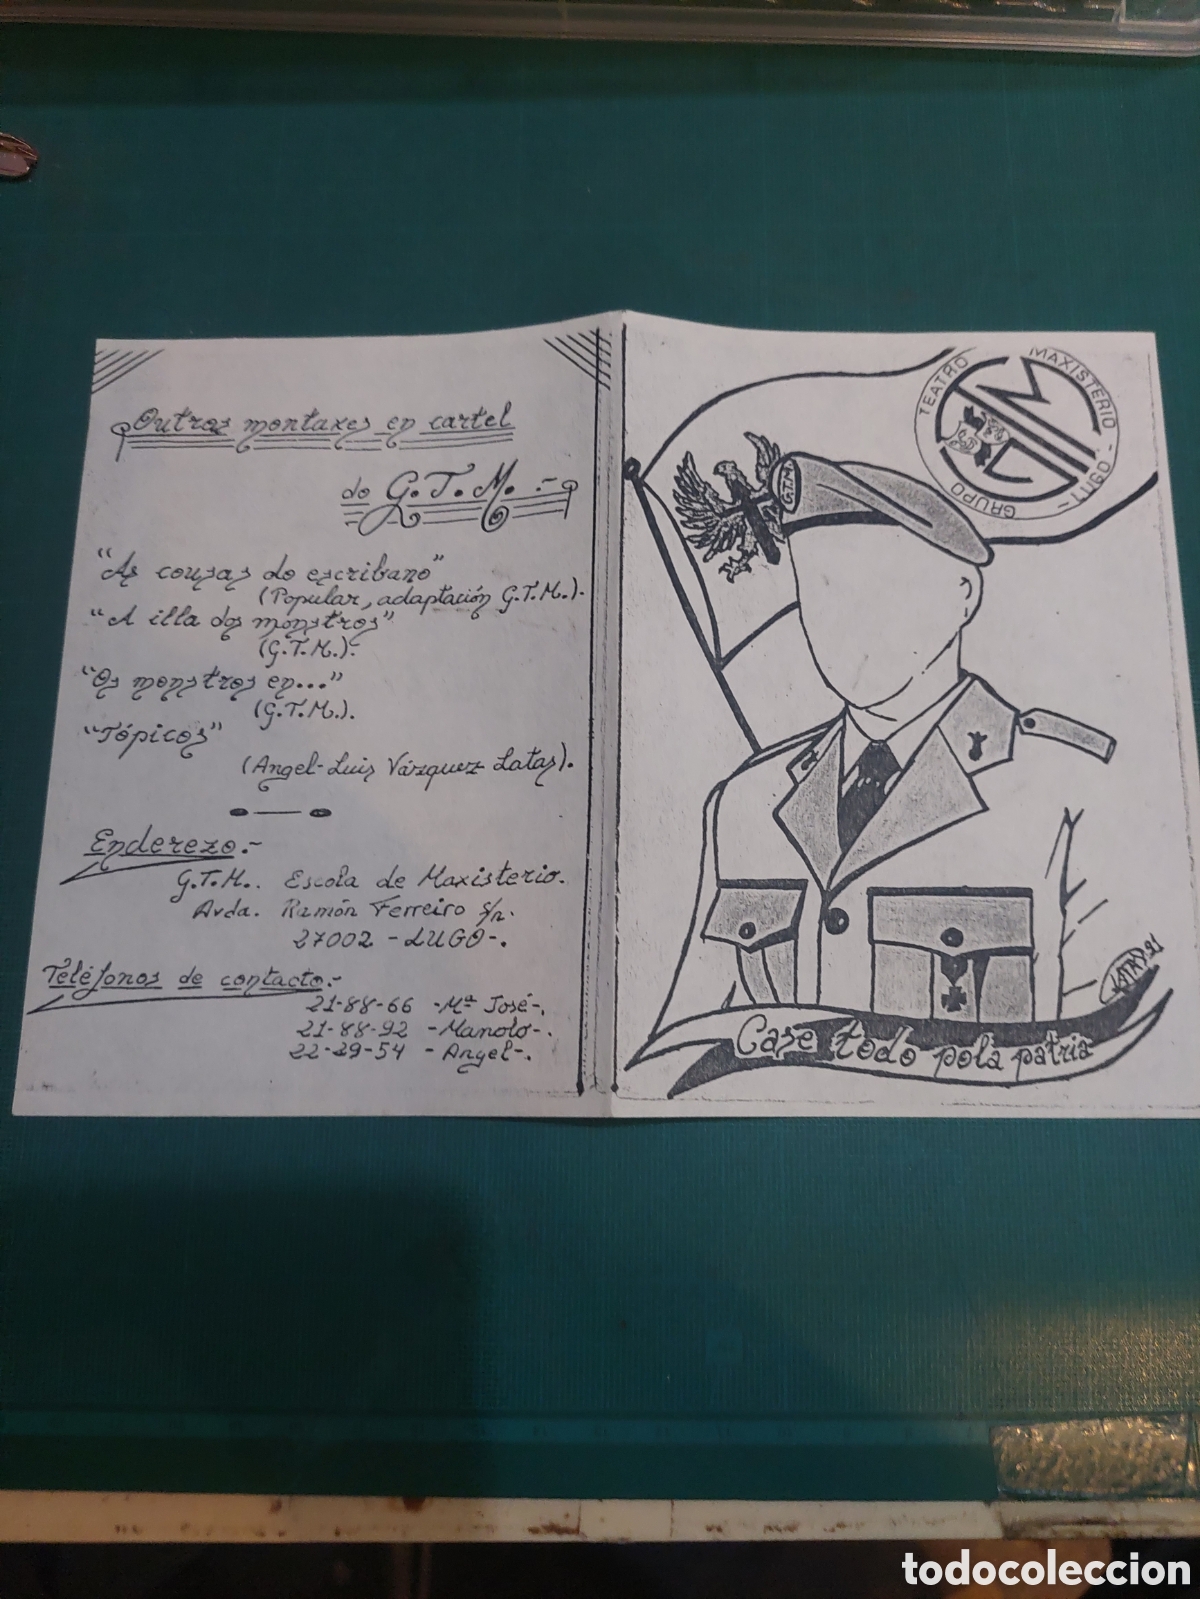 Outros montaxes en cartel
do G.T.M.:-
"As cousas do escribano"
(Popular, adaptación G.T.M.).
"A illa dos monstros"
(G.T.M.).
"Os monstros en..."
(G.T.M.).
"Tópicos"
(Angel-Luis Vázquez Latas).
Enderezo.-
G.T.M.. Escola de Maxisterio.
Avda. Ramón Ferreiro s/n.
27002 -LUGO-.
Teléfonos de contacto:-
21-88-66 -Mª José-.
21-88-92 -Manolo-.
22-29-54 -Angel-.
GRUPO TEATRO MAXISTERIO - LUGO -
GTM
G.T.M.
LATAS 91
Case todo pola patria
todocoleccion